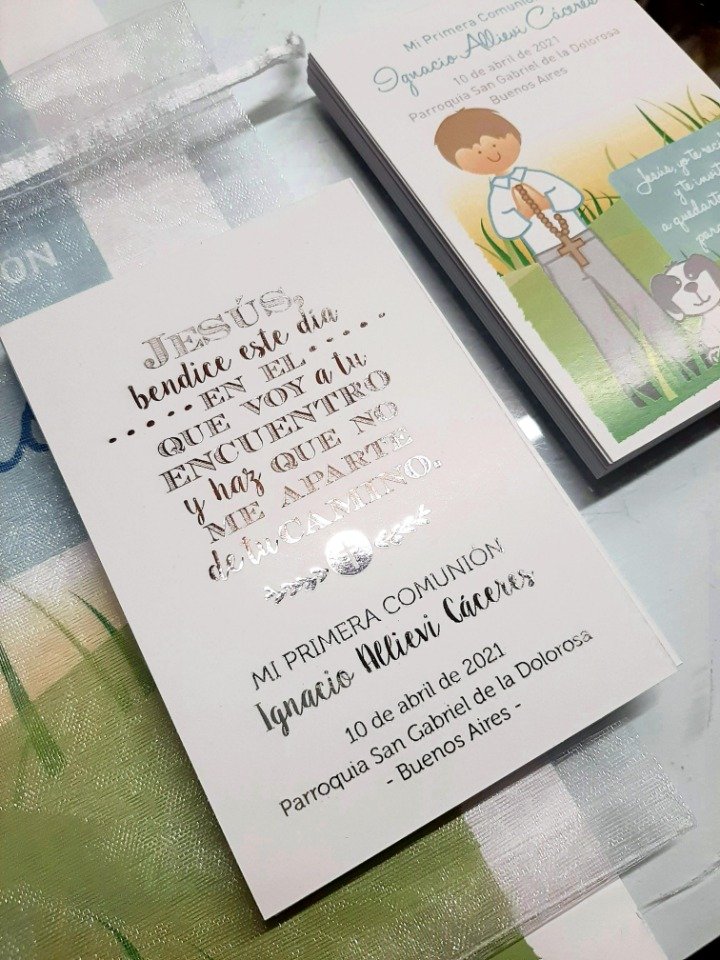 Mi Primera Comunión
Ignacio Allievi Cáceres
10 de abril de 2021
Parroquia San Gabriel de la Dolorosa
Buenos Aires
Jesús, yo te
y te
a
para
JESÚS,
bendice este día
EN EL
QUE VOY a tu
ENCUENTRO
y haz QUE NO
ME APARTE
de tu CAMINO.
MI PRIMERA COMUNIÓN
Ignacio Allievi Cáceres
10 de abril de 2021
Parroquia San Gabriel de la Dolorosa
- Buenos Aires -